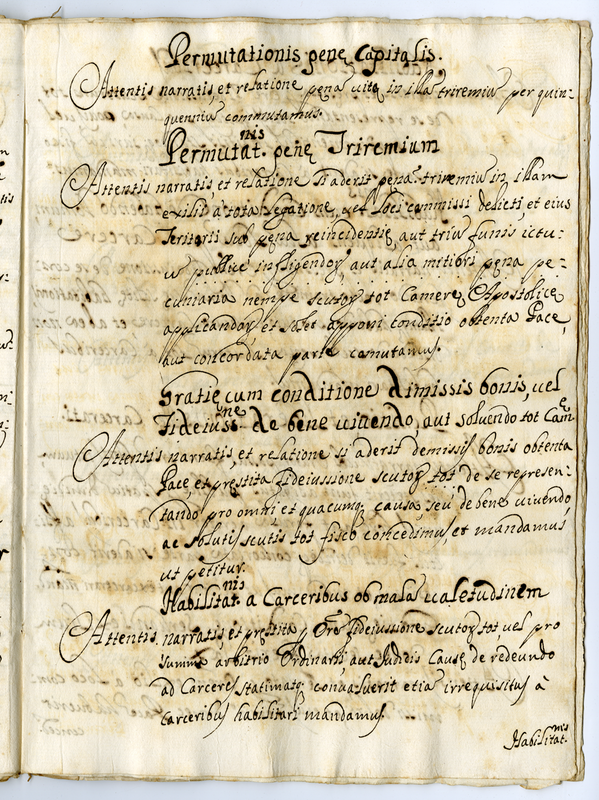 Permutationis penę Capitalis.
Attentis narratis, et relatione pena vitę in illā triremiū per quin-
quenniū commutamus.
Permutat.nis penę Triremium
Attentis narratis et relatione si aderit pena triremiū in illam
exilii à tota legatione, vel loci commissi delicti, et eius
Teritorii sub pęna reincidentię aut triū funis ictu-
ū publice infligendoȝ, aut alia mitiori pęna pe-
cuniaria nempe scutoȝ tot Camerę Apostolicę
applicandoȝ et solet apponi conditio obtenta Pace,
aut concordata parte comutamus.
Gratię cum conditione dimissis bonis, vel
Fideiuss.ne de bene vivendo, aut solvendo tot Camę
Attentis narratis, et relatione si aderit demissis bonis obtenta
Pace, et pręstita fideiussione scutoȝ tot de se represen-
tando pro omni, et quacumq; causa, seu de bene vivendo,
ac solutis scutis tot fisco concedimus, et mandamus
ut petitur.
Habilitat.nis a Carceribus ob malā valetudinem
Attentis narratis, et pręstita p Orē fideiussione scutoȝ tot, vel pro
summa arbitrio Ordinarii, aut Iudicis Causę de redeundo
ad Carceres statimatq; convaluerit etiā irrequisitus à
Carceribus habilitari mandamus.
Habilitat.nis